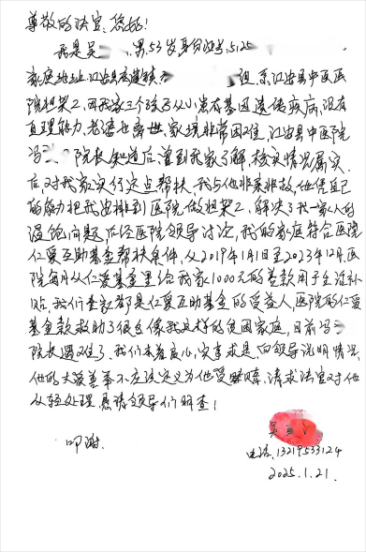 尊敬的法官、您好!
我是吴 男,53岁身份证号,5125
家庭地址,江安县 镇 组,系江安县中医医
院担架工,因我家三个孩子从小患有基因遗传疾病,没有
自理能力,老婆也离世,家境非常困难,江安县中医院
冯 院长知道后曾到我家了解,核实情况属实
后对我家实行定点帮扶,我与他非亲非故,他凭自己
的能力把我安排到医院做担架工,解决了我一家人的
温饱问题,后经医院领导讨论,我的家庭符合医院
仁爱互助基金帮扶条件,从2019年1月1日至2023年12月医
院每月从仁爱基金里给我家1000元的善款用于生活补
贴,我们全家都是仁爱互助基金的受益人,医院的仁爱
基金款救助了很多像我这样的贫困家庭,目前冯
院长遇难了,我们本着良心,实事求是向领导说明情况,
他的大爱善事不应该定义为他受贿赂,请求法官对他
从轻处理,恳请领导们明查!
叩谢.
吴
电话,13219533124
2025.1.21.